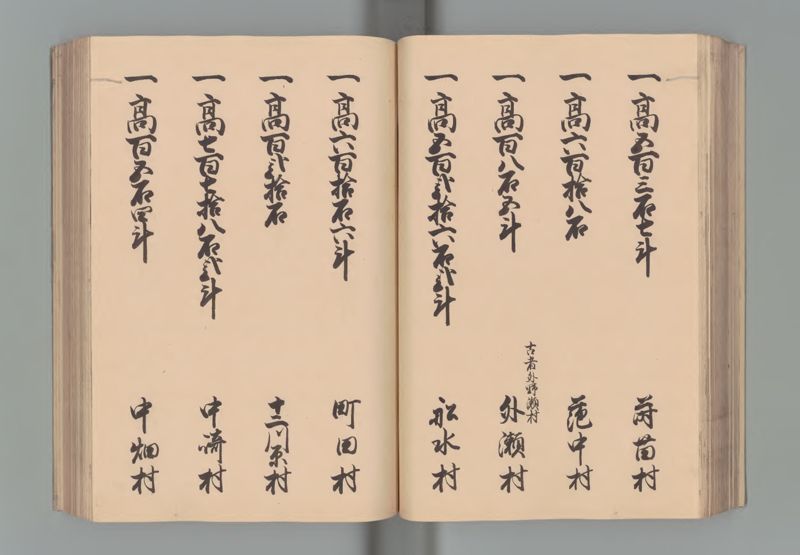 一高五百三石七斗 蒔苗村
一高六百拾八石 範中村
一高百八石五斗 外瀬村
古者外野瀬村
一高五百弐拾六石弐斗 船水村
一高六百拾石六斗 町田村
一高百弐拾石 十二川原村
一高七百七拾八石弐斗 中崎村
一高百五石四斗 中畑村